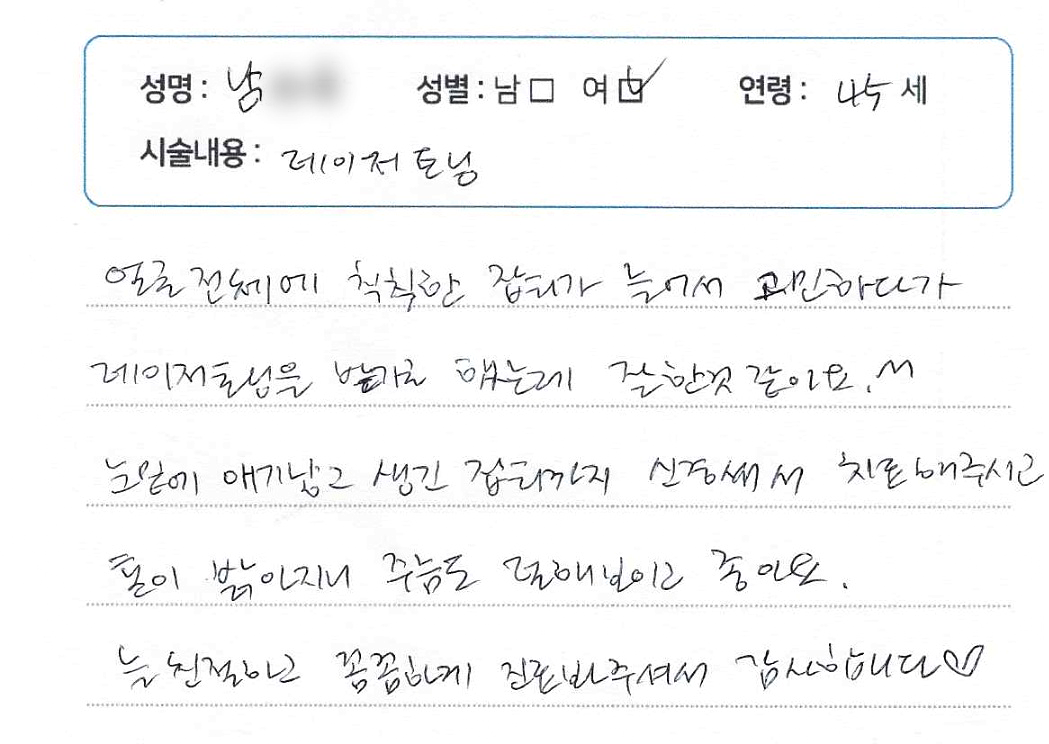 성명 : 남 성별 : 남 □ 여 ☑ 연령 : 45 세
시술내용 : 레이저 토닝
얼굴전체에 칙칙한 잡티가 늘어서 고민하다가
레이저토닝을 받기로 했는데 잘한것 같아요.^^
눈밑에 애기낳고 생긴 잡티까지 신경써서 치료해주시고
톤이 밝아지니 주름도 덜해보이고 좋아요.
늘 친절하고 꼼꼼하게 진료봐주셔서 감사합니다♡